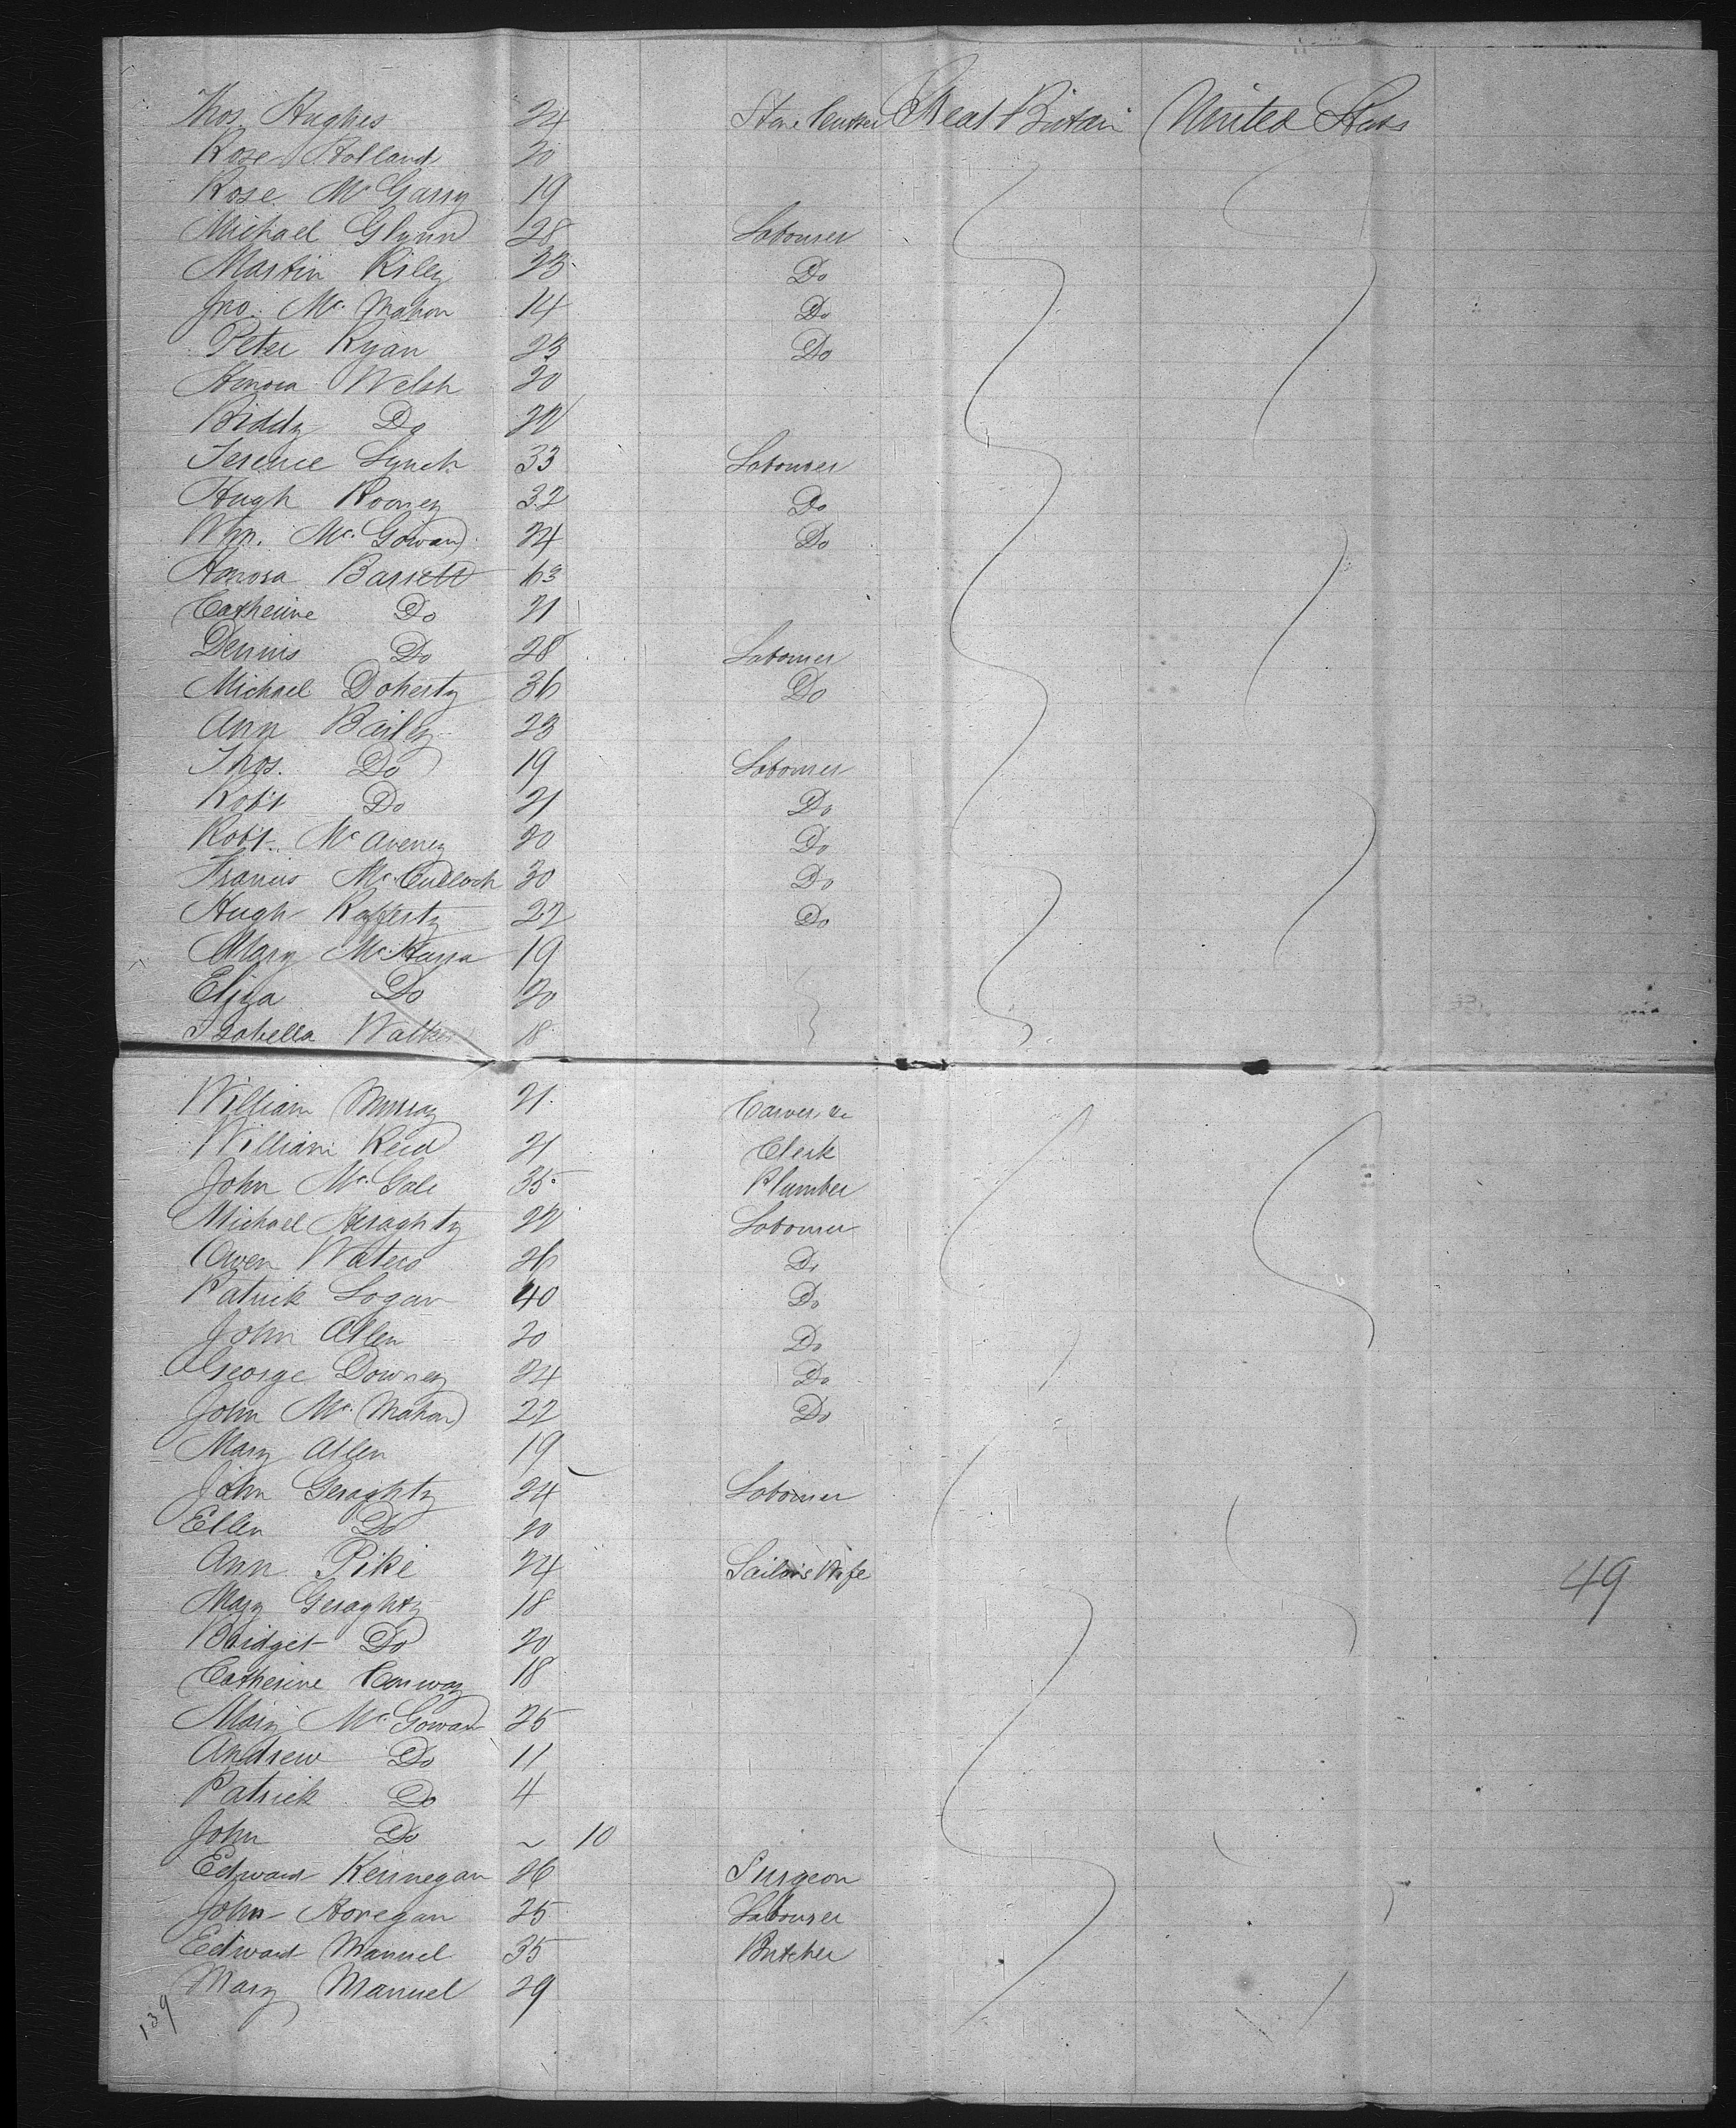 Thos. Hughes 24 Stone Cutter Great Britain United States
Rose Holland 20
Rose McGarry 19
Michael Glynn 28 Labourer
Martin Riley 25 Do
Jno. Mc.Mahon 14 Do
Peter Ryan 23 Do
Honora Welsh 20
Biddy Do 20
Terence Lynch 33 Labourer
Hugh Rooney 32 Do
Wm. Mc.Gowan 24 Do
Honora Barrett 63
Catherine Do 21
Dennis Do 28 Labourer
Michael Doherty 36 Do
Ann Bailey 23
Thos. Do 19 Labourer
Robt Do 21 Do
Robt. McAveney 20 Do
Francis Mc.Culloch 30 Do
Hugh Rafferty 22 Do
Mary Mc.Harra 19
Eliza Do 20
Isabella Walker 18
William Murray 21 Carver, &c
William Reid 21 Clerk
John Mc.Gale 35 Plumber
Michael Heraghty 22 Labourer
Owen Waters 26 Do
Patrick Logan 40 Do
John Allen 20 Do
George Downey 24 Do
John Mc.Mahon 22 Do
Mary Allen 19
John Geraghty 24 Labourer
Ellen Do 20
Ann Pike 24 Sailor's Wife 49
Mary Geraghty 18
Bridget Do 20
Catherine Conway 18
Mary Mc.Gowan 25
Andrew Do 11
Patrick Do 4
John Do ~ 10
Edward Kennegan 26 Surgeon
John Horegan 25 Labourer
Edward Manuel 35 Butcher
Mary Manuel 29
139